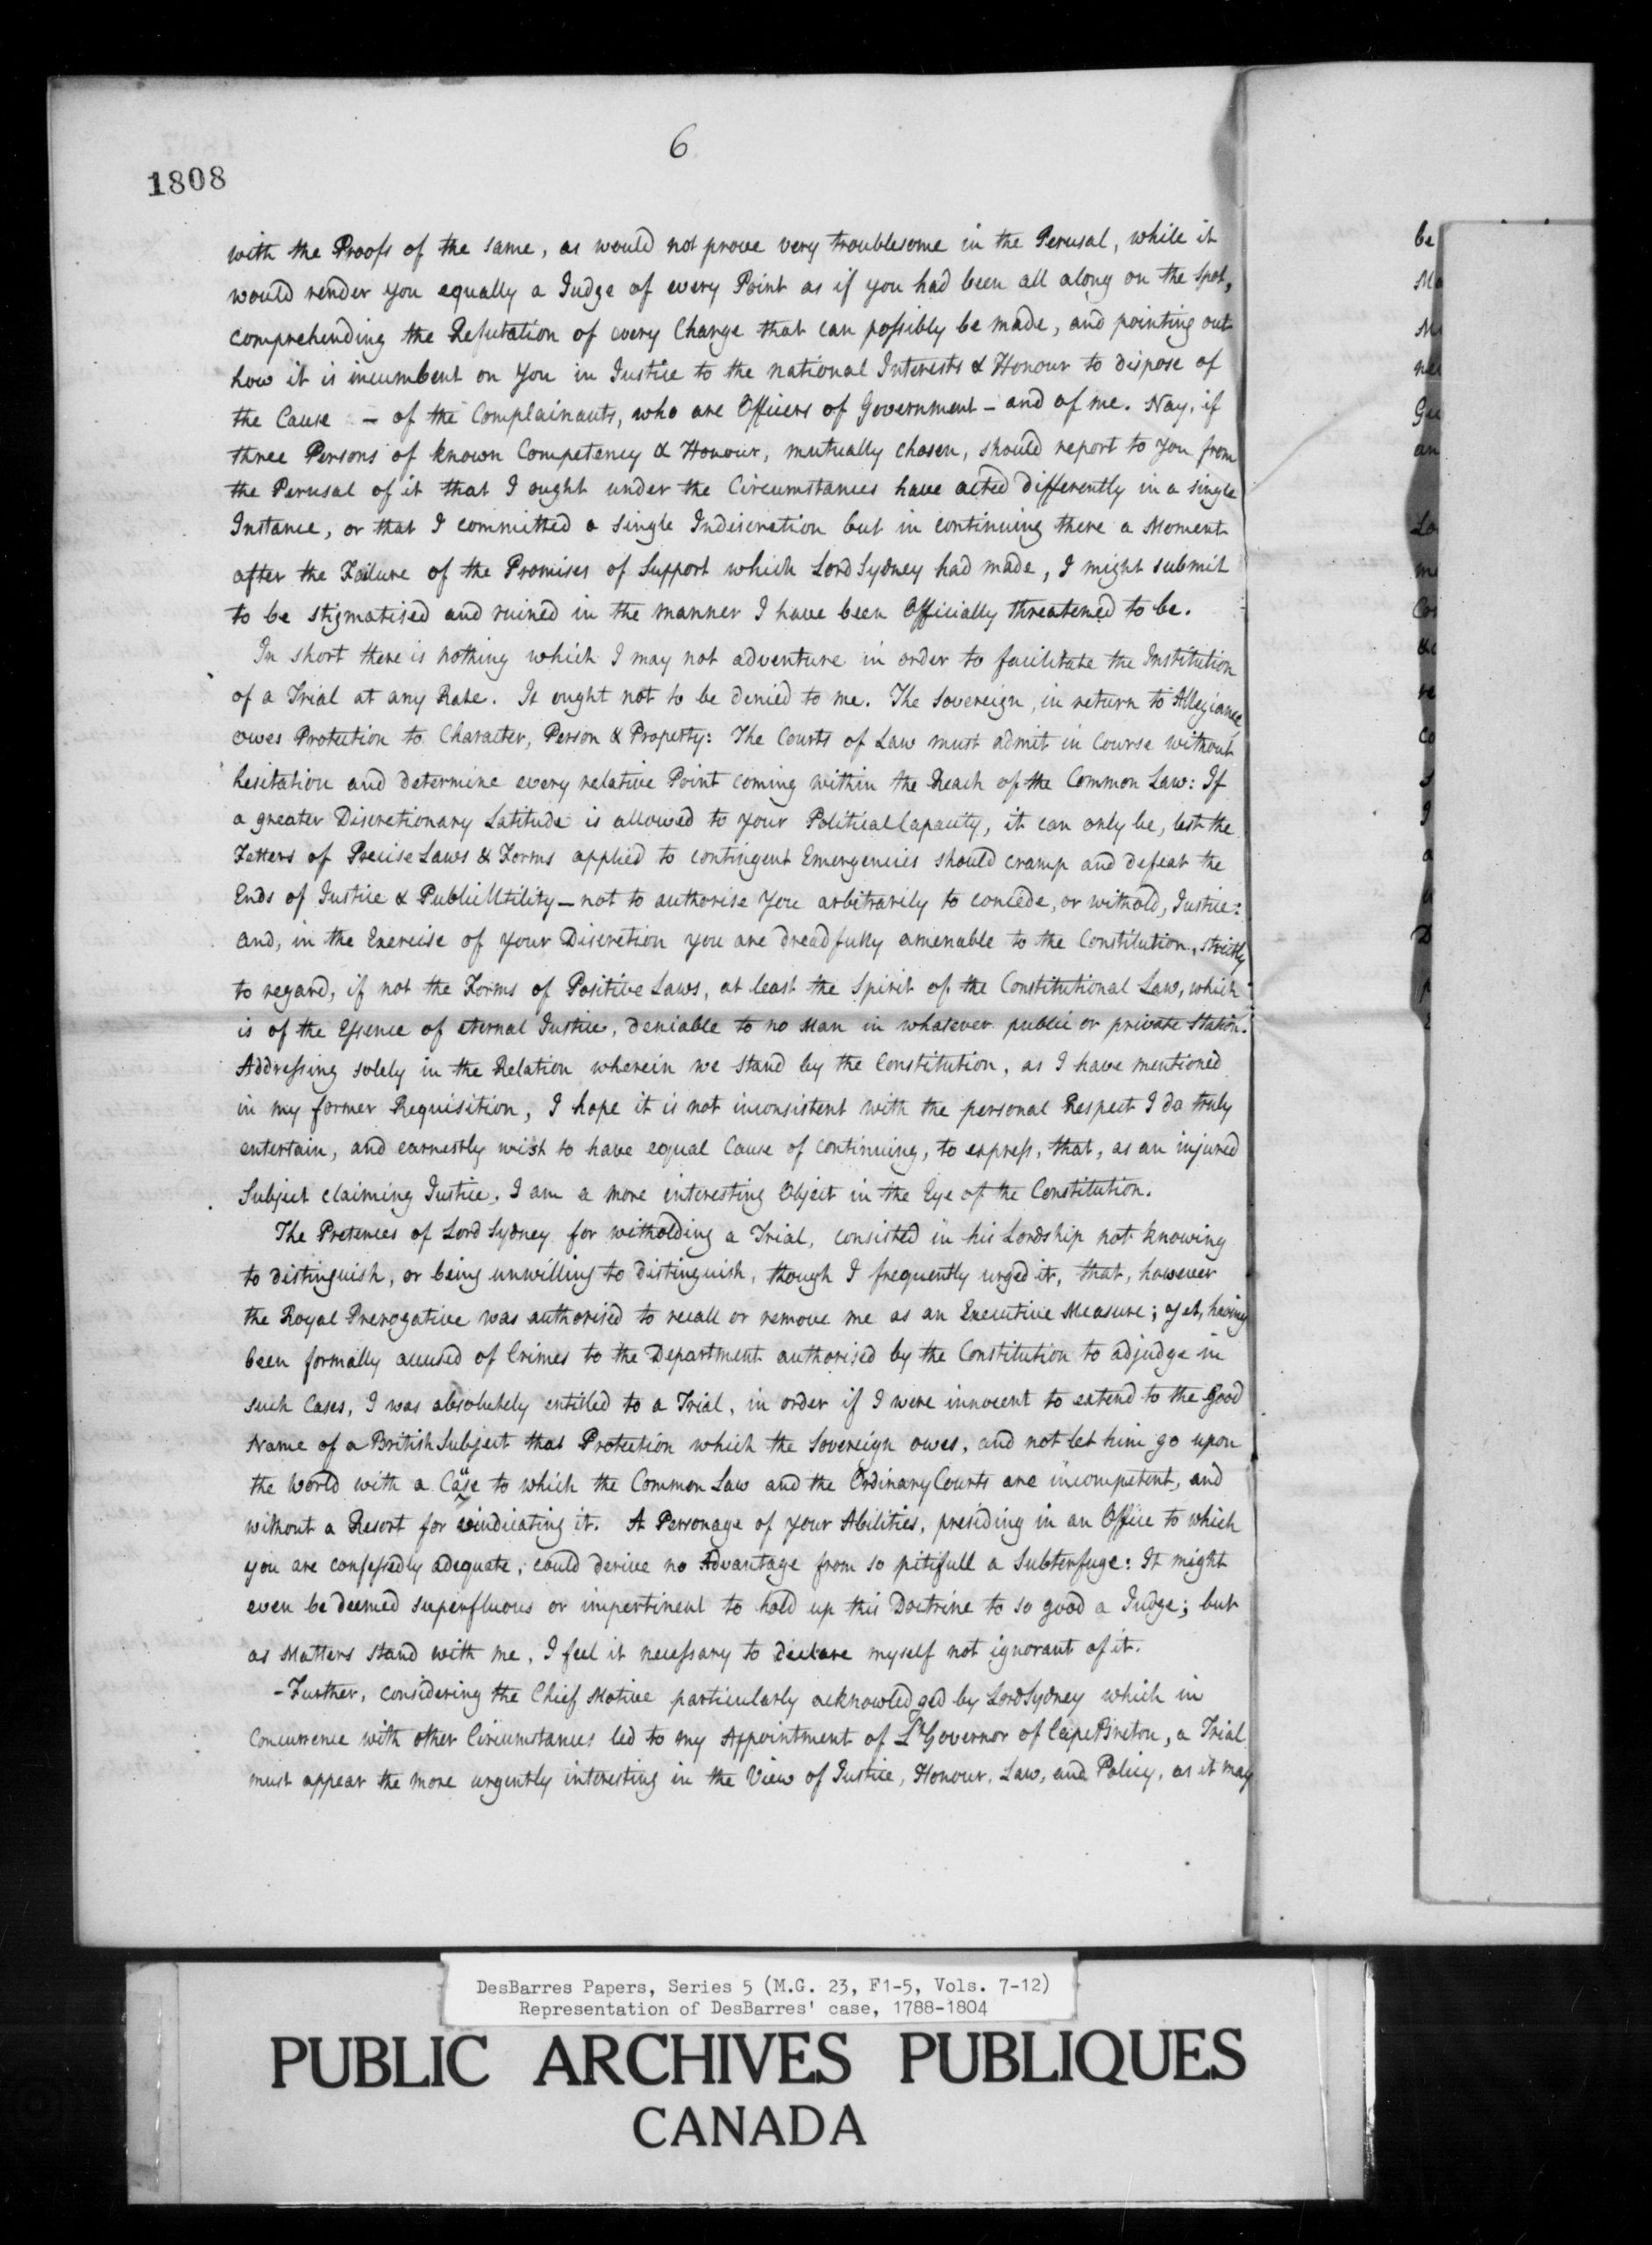 6
1808
with the Proofs of the same, as would not prove very troublesome in the Perusal, while it
would render you equally a Judge of every Point as if you had been all along on the Spot,
comprehending the Refutation of every Charge that can possibly be made, and pointing out
how it is incumbent on You in Justice to the national Interests & Honour to dispose of
the Cause - of the Complainants, who are Officers of Government - and of me. Nay, if
three Persons of known Competency & Honour, mutually chosen, should report to you from
the Perusal of it that I ought under the Circumstances have acted differently in a single
Instance, or that I committed a single Indiscretion but in continuing there a Moment
after the Failure of the Promises of Support which Lord Sydney had made, I might submit
to be stigmatised and ruined in the manner I have been Officially threatened to be.
In short there is nothing which I may not adventure in order to facilitate the Institution
of a Trial at any Rate. It ought not to be denied to me. The Sovereign, in return to Allegiance
owes Protection to Character, Person & Property: The Courts of Law must admit in Course without
hesitation and determine every relative Point coming within the Reach of the Common Law: If
a greater Discretionary Latitude is allowed to your Political Capacity, it can only be, lest the
Fetters of Precise Laws & Forms applied to contingent Emergencies should cramp and defeat the
Ends of Justice & Public Utility - not to authorise You arbitrarily to concede, or withold, Justice:
and, in the Exercise of your Discretion you are dreadfully amenable to the Constitution, strictly
to regard, if not the Forms of Positive Laws, at least the Spirit of the Constitutional Law, which
is of the Essence of eternal Justice, deniable to no Man in whatever public or private Station.
Addressing solely in the Relation wherein we stand by the Constitution, as I have mentioned
in my former Requisition, I hope it is not inconsistent with the personal Respect I do truly
entertain, and earnestly wish to have equal Cause of continuing, to express, that, as an injured
Subject claiming Justice, I am a more interesting Object in the Eye of the Constitution.
The Pretences of Lord Sydney for witholding a Trial, consisted in his Lordship not knowing
to distinguish, or being unwilling to distinguish, though I frequently urged it, that, however
the Royal Prerogative was authorised to recall or remove me as an Executive Measure; yet, having
been formally accused of Crimes to the Department authorised by the Constitution to adjudge in
such Cases, I was absolutely entitled to a Trial, in order if I were innocent to extend to the good
Name of a British Subject that Protection which the Sovereign owes, and not let him go upon
the World with a Cause to which the Common Law and the Ordinary Courts are incompetent, and
without a Resort for vindicating it. A Personage of your Abilities, presiding in an Office to which
you are confessedly adequate, could derive no Advantage from so pitifull a Subterfuge: It might
even be deemed superfluous or impertinent to hold up this Doctrine to so good a Judge; but
as Matters stand with me, I feel it necessary to declare myself not ignorant of it.
- Further, considering the Chief Motive particularly acknowledged by Lord Sydney which in
Concurrence with other Circumstances led to my Appointment of Lt Governor of Cape Breton, a Trial
must appear the more urgently interesting in the View of Justice, Honour, Law, and Policy, as it may
be
DesBarres Papers, Series 5 (M.G. 23, F1-5, Vols. 7-12)
Representation of DesBarres' case, 1788-1804
PUBLIC ARCHIVES PUBLIQUES
CANADA